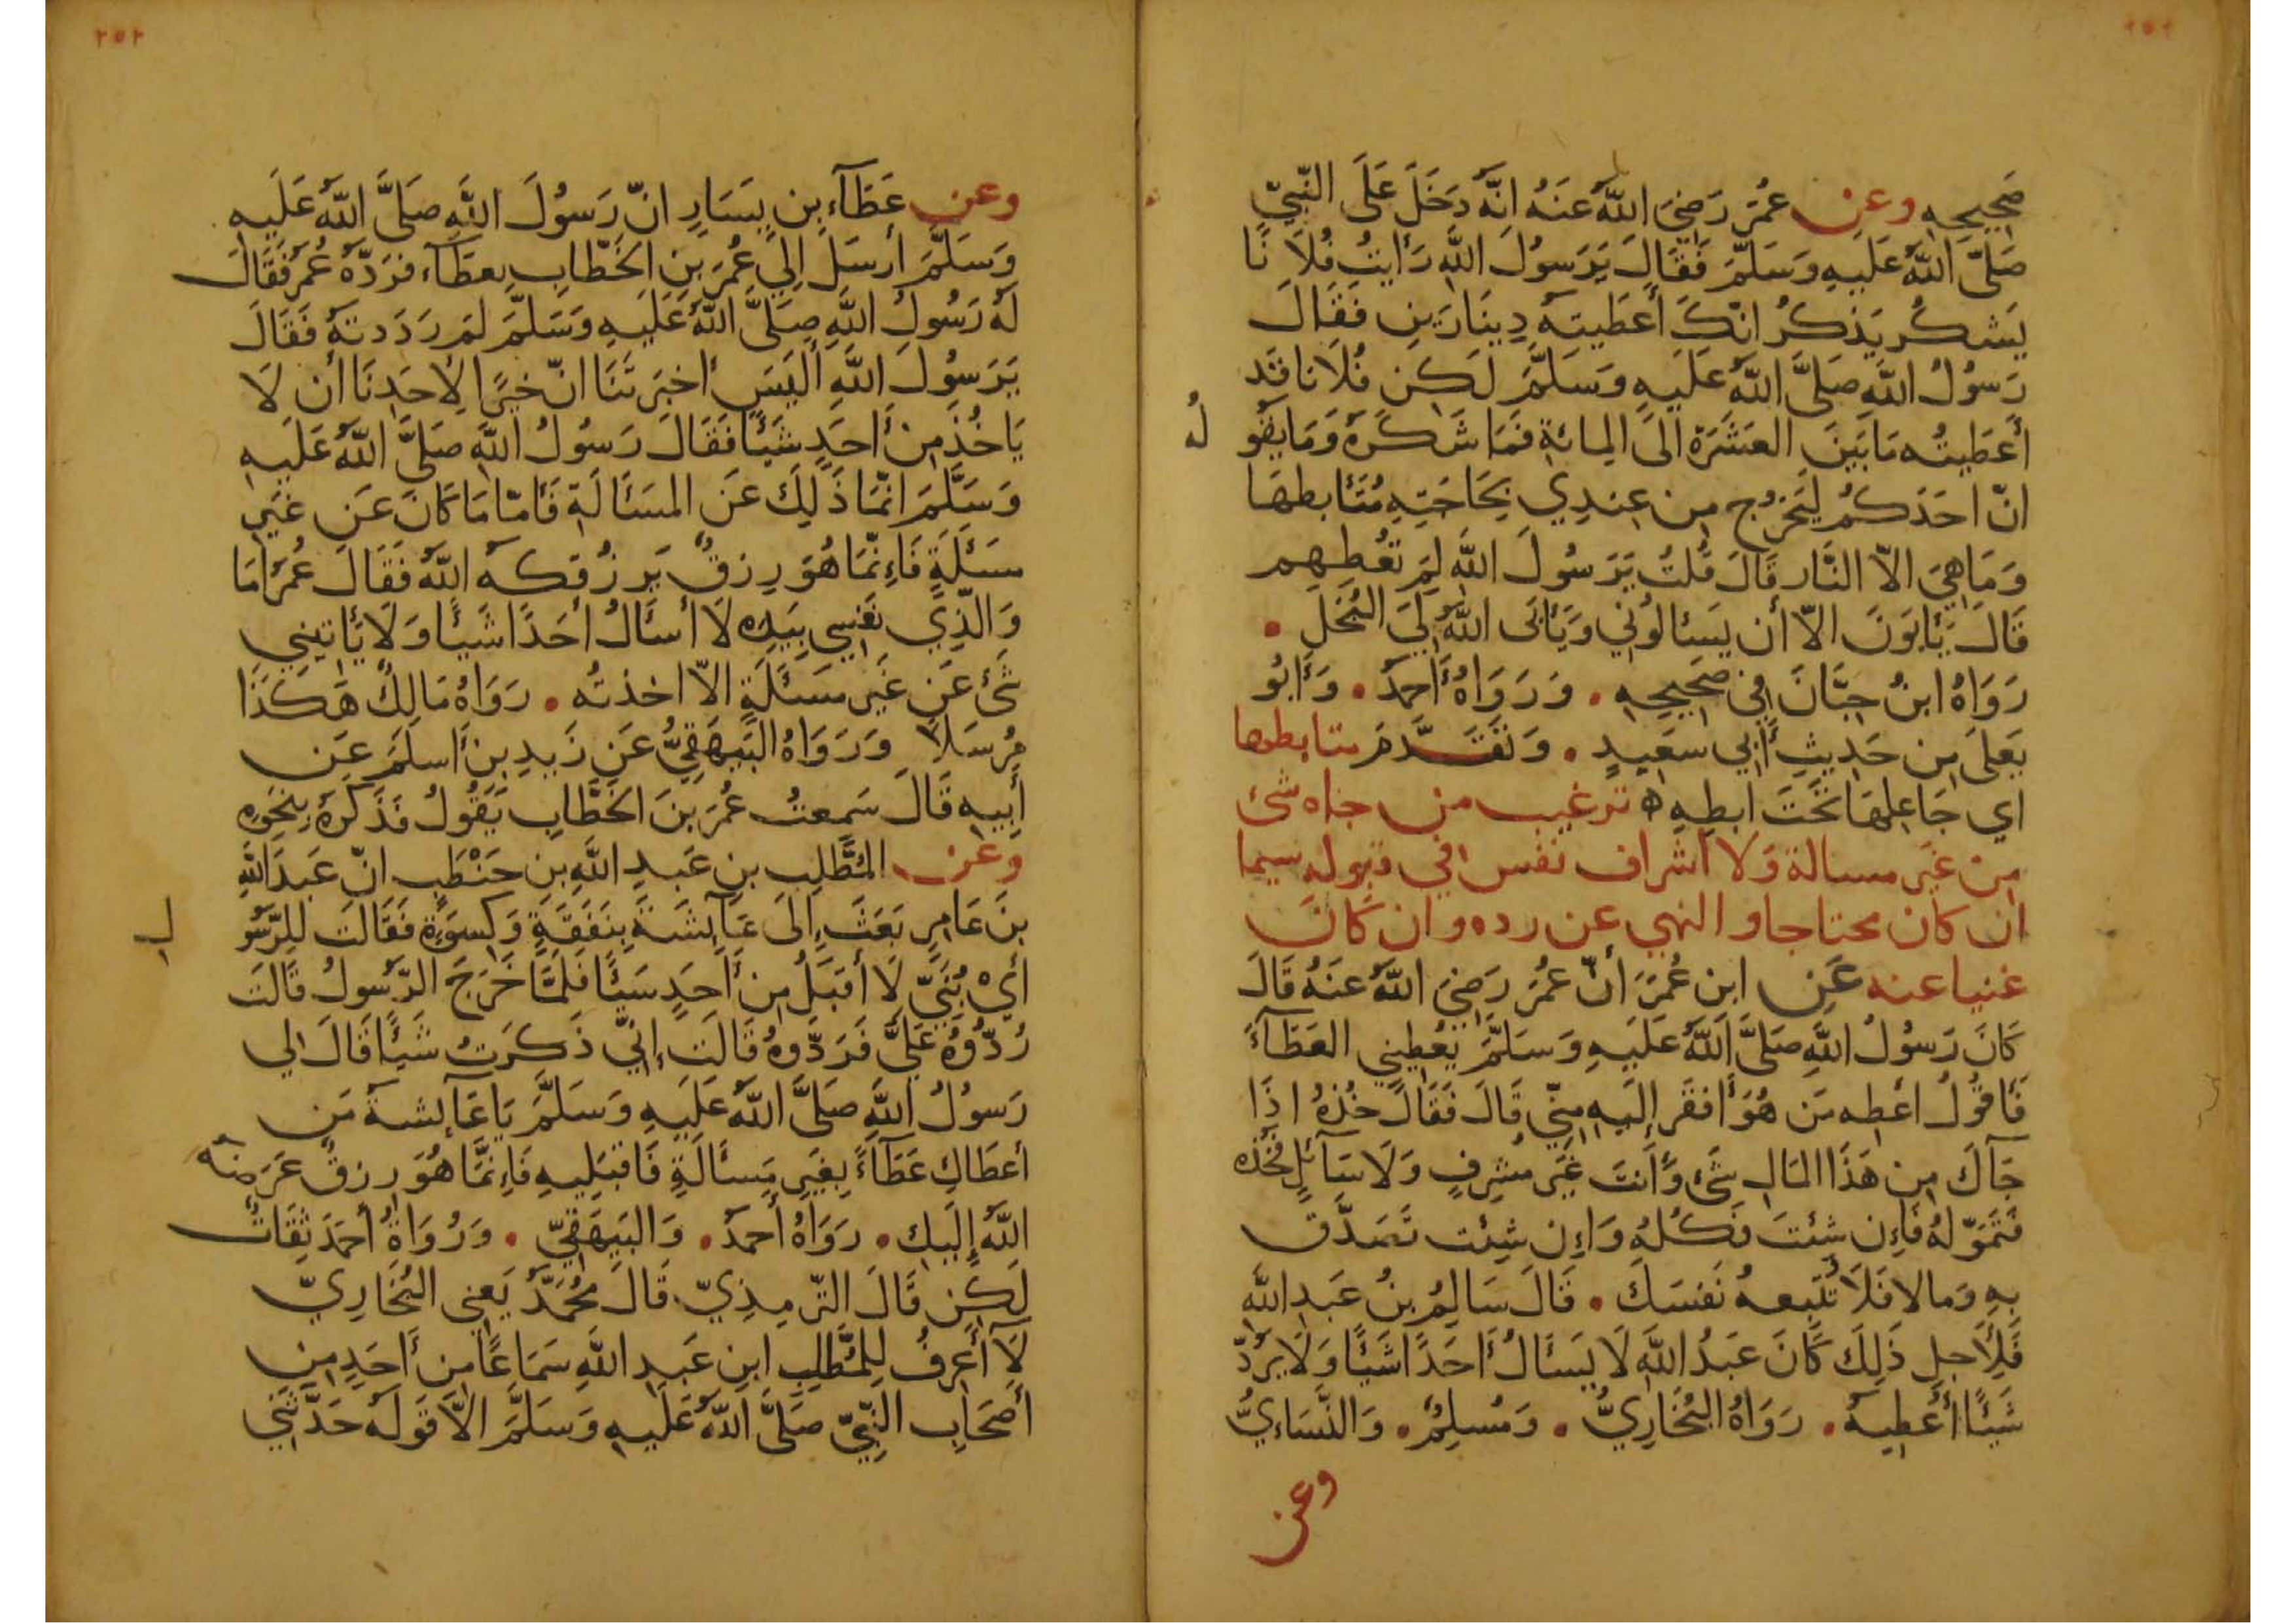 صَحِيحِهِ وعن عُمَرَ رَضِيَ اللَّهُ عَنهُ انَّهُ دَخَلَ عَلَى النَّبِيِّ
صَلَّى اللَّهُ عَلَيهِ وَسَلَّمَ فَقَالَ يَرَسُولَ اللَّهِ رَأَيتُ فُلَانًا
يَشكُر يَذكُرُ انَّكَ أَعطَيتَهُ دِينَارَينِ فَقَالَ
رَسُولُ اللَّهِ صَلَّى اللَّهُ عَلَيهِ وَسَلَّمَ لَكِن فُلَانا قَد
أَعطَيتُه مَا بَينَ العَشَرَة الَى المِائَةِ فَمَا شَكَرَهُ وَمَا يَقُو
لُه
انّ احَدَكُم لَيَخرُج مِن عِندِي بِحَاجَتِهِ مُتَأَبطهَا
وَمَا هِيَ الاّ النَّار قَالَ قُلتُ يَرَسُولَ اللَّهِ لِمَ تُعطِهِم
قَالَ يَأبَونَ الاّ أَن يَسئالُوني وَيَأبَى اللَّهُ لِيَ البُخَلَ •
رَوَاهُ ابنُ حِبَّانَ فِي صَحِيحِهِ • وَرَوَاهُ أَحمَدُ • وَأَبُو
يَعلَى مِن حَدِيثِ أَبِي سَعِيدٍ • وَتَقَدَّمَ متابطها
اي جَاعِلهَا تَحتَ ابطِهِ ه ترغيب من جاه شئ
من غَير مسالة وَلا اشراف نفس في قبوله سيما
ان كان محتاجا و النهي عن رده و ان كَانَ
غنيا عنه عَنِ ابنِ عُمَرَ أَنّ عُمَرَ رَضِيَ اللَّهُ عَنهُ قَالَ
كَانَ رَسُولُ اللَّهِ صَلَّى اللَّهُ عَلَيهِ وَسَلَّمَ يُعطِينِي العَطَآءَ
فَأَقُولُ اعطِه مَن هُوَ أَفقَر إِلَيهِ مِنّي قَالَ فَقَالَ خُذهُ اذَا
جَآكَ مِن هَذَا المَال شَئ وَأَنتَ غَيرَ مُشرِفٍ وَلَا سَآئِلٍ فَخُذه
فَتَمَوّلهُ فَإِن شِئتَ فكُلهُ وَإِن شِئت تَصَدَّق
بِهِ وَمالا فَلَا تُتبِعهُ نَفسَكَ • قَالَ سَالِمُ بنُ عَبدِ اللَّهِ
فَلِأَجلِ ذَلِكَ كَانَ عَبدُ اللَّهِ لَا يَسئَالُ أَحَدًا شَيئًا وَلَا يَرُدّ
شَيئًا أُعطِيَهُ • رَوَاهُ البُخَارِيُّ • وَمُسلِمٌ • وَالنَّسَاءيُّ
وعن
وعن عَطَآءِ بنِ يَسَارٍ انّ رَسُولَ اللَّهِ صَلَّى اللَّهُ عَلَيهِ
وَسَلَّمَ أَرسَلَ إِلَى عُمَرَ بنِ الخَطّابِ بِعَطَآء فرَدَّهُ عُمَرُ فَقَالَ
لَهُ رَسُولُ اللَّهِ صَلَّى اللَّهُ عَلَيهِ وَسَلَّمَ لِمَ رَدَدتهُ فَقَالَ
يَرَسُولَ اللَّهِ أَلَيسَ أَخبَرتَنَا انّ خيرًا لِأَحَدِنَا أَن لَا
يَاخُذَ مِن أَحَدٍ شَيئًا فَقَالَ رَسُولُ اللَّهِ صَلَّى اللَّهُ عَلَيهِ
وَسَلَّمَ انّمَا ذَلِكَ عَنِ المَسَألَةِ فَأَمّا مَا كَانَ عَن غَيرِ
مسَئَلَةٍ فَإِنّمَا هُوَ رِزقٌ يَرزُقكهُ اللَّهُ فَقَالَ عُمَرُ أَمَا
وَالَّذِي نَفسِي بِيَدِهِ لَا أَسئَالُ أَحَدًا شَيئًا وَلَا يَأتِينِي
شَئ عَن غَيرِ مسَئَلَةٍ الاّ اخذتُه • رَوَاهُ مَالِكٌ هَكَذَا
مُرسَلًا وَرَوَاهُ البَيهَقِيُّ عَن زَيدِ بنِ أَسلَمَ عَن
أَبِيهِ قَالَ سَمِعتُ عُمَرَ بنَ الخَطَّابِ يَقُولُ فَذَكَرَهُ بِنَحوِهِ
وعن المُطَّلِبِ بنِ عَبدِ اللَّهِ بنِ حَنْطَبٍ انّ عَبدَ اللَّهِ
بنَ عَامِرٍ بَعَثَ إِلَى عَآئِشَةَ بِنَفَقَةٍ وَكِسوَةٍ فَقَالَت لِلرَّسُو
لِ
أَيْ بُنَيّ لَا أَقبَلُ مِن أَحَدٍ سَيئًا فَلَمَّا خَرَجَ الرَّسُولُ قَالَت
رُدُّوهُ عَلَيَّ فَرَدّوهُ قَالَت إِنّي ذَكَرتُ شَيئًا قَالَ لي
رَسُولُ اللَّهِ صَلَّى اللَّهُ عَلَيهِ وَسَلَّمَ يَا عَآئِشَةُ مَن
أَعطَاكِ عَطَآءً بِغَيرِ مَسئَالَةٍ فَاقبَلِيهِ فَإِنَّمَا هُوَ رِزقٌ عَرَضَهُ
اللَّهُ إِلَيكِ • رَوَاهُ أَحمَدُ • وَالبَيهَقِيّ • وَرُوَاةُ أَحمَدَ ثِقَاتٌ
لَكِن قَالَ التّرمِذِيّ • قَالَ مُحَمَّدٌ يَعنِي البُخَارِيّ
لَا أَعرِفُ لِلمُطَّلِبِ ابنِ عَبدِ اللَّهِ سَمَاعًا مِن أَحَدٍ مِن
أَصحَابِ النَّبِيّ صَلَّى اللَّهُ عَلَيهِ وَسَلَّمَ الاَّ قَولَهُ حَدَّثَنِي